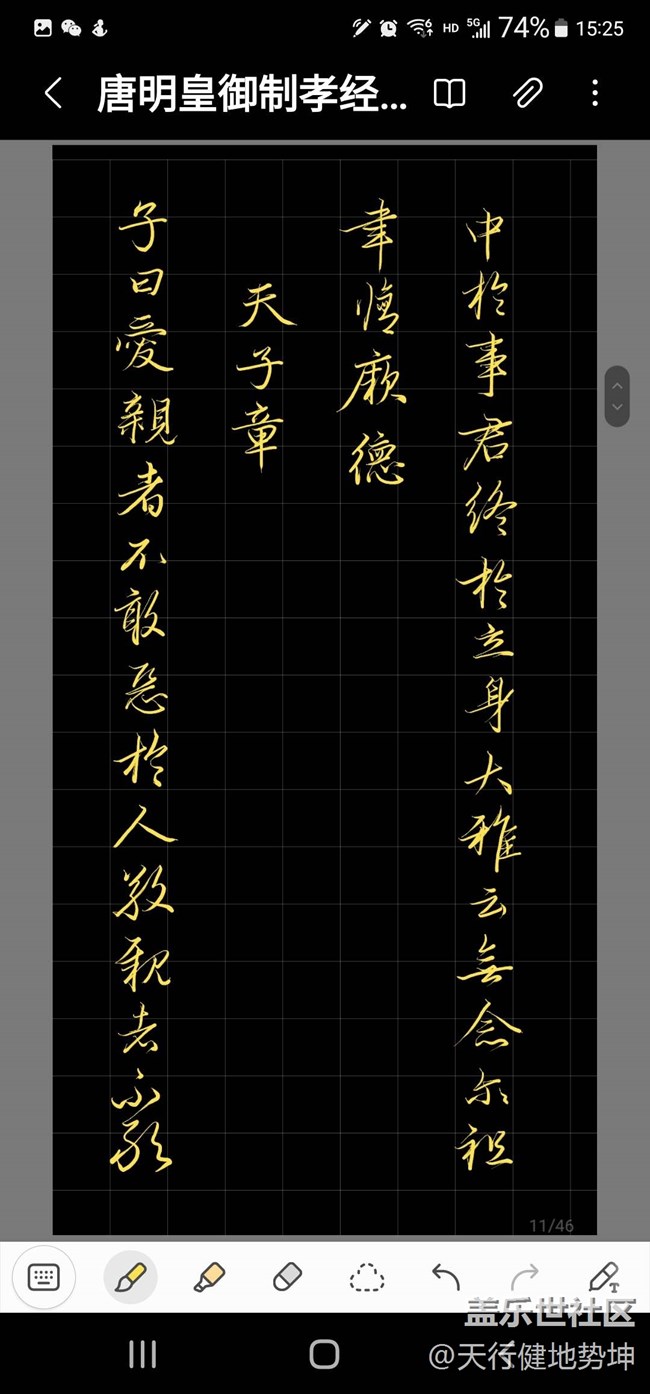 74% 15:25
唐明皇御制孝经...
中於事君终於立身大雅云無念尔祖
聿脩厥德
天子章
子曰愛親者不敢惡於人敬親者不敢
11/46
盖乐世社区
@天行健地势坤